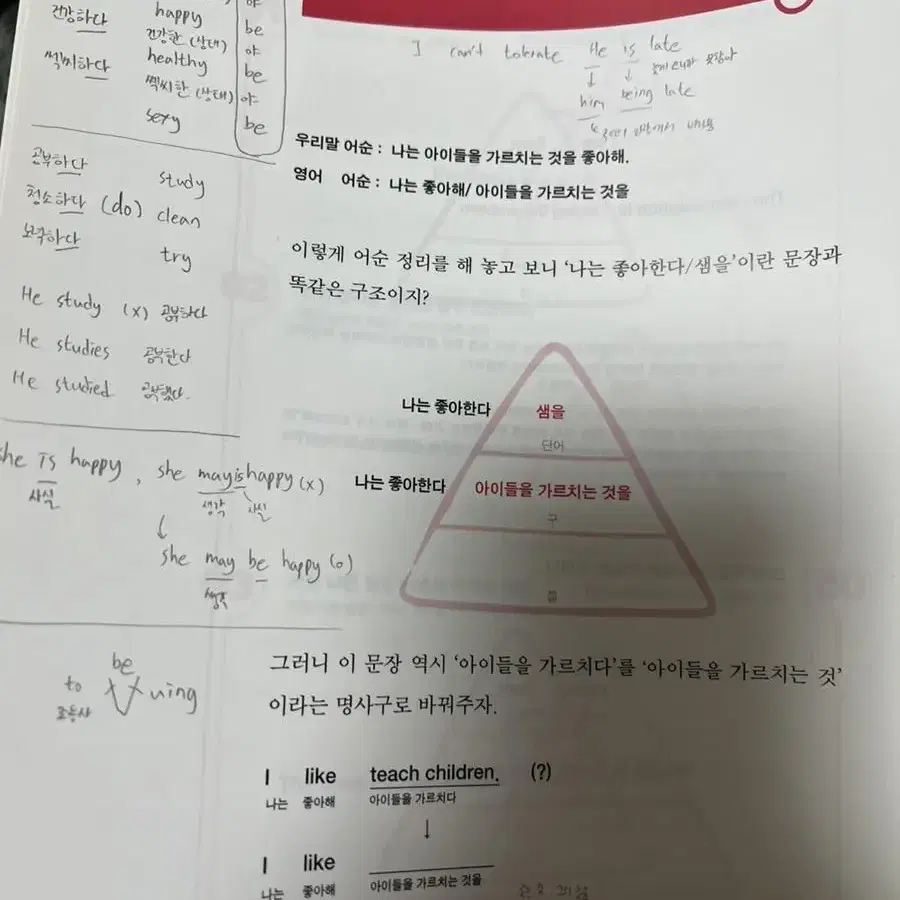 건강하다 happy 야
건강한 (상태) be
healthy 야
섹씨하다 be
섹씨한 (상태) 야
sexy be
I can't tolerate He is late
him being late
우리말 어순 : 나는 아이들을 가르치는 것을 좋아해.
영어 어순 : 나는 좋아해/ 아이들을 가르치는 것을
공부하다 study
청소하다 (do) clean
try
He study (x) 공부하다
He studies 공부한다
He studied 공부했다.
이렇게 어순 정리를 해 놓고 보니 '나는 좋아한다/샘을'이란 문장과
똑같은 구조이지?
나는 좋아한다 샘을
단어
나는 좋아한다 아이들을 가르치는 것을
구
절
she is happy, she may is happy (x)
사실 생각 사실
she may be happy (o)
생각
그러니 이 문장 역시 '아이들을 가르치다'를 '아이들을 가르치는 것'
이라는 명사구로 바꿔주자.
be
to ing
조동사
I like teach children. (?)
나는 좋아해 아이들을 가르치다
↓
I like
나는 좋아해 아이들을 가르치는 것을